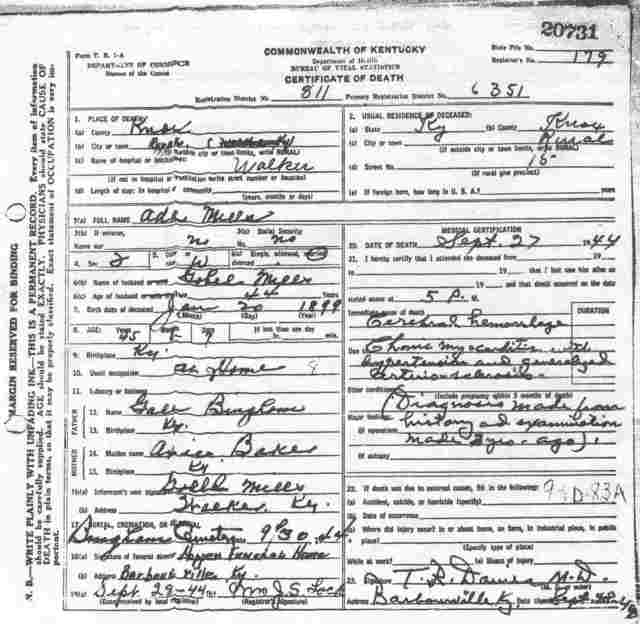 20731
Form V. S. 1-A
COMMONWEALTH OF KENTUCKY
State File No.
DEPARTMENT OF COMMERCE
Department of Health
Registrar's No. 179
Bureau of the Census
BUREAU OF VITAL STATISTICS
CERTIFICATE OF DEATH
Registration District No. 811 Primary Registration District No. 6351
1. PLACE OF DEATH
(a) County Knox
(b) City or town
(If outside city or town limits, write RURAL)
(c) Name of hospital or institution
Walker
(If not in hospital or institution write street number or location)
(d) Length of stay: In hospital or community
(Years, months or days)
2. USUAL RESIDENCE OF DECEASED:
(a) State Ky (b) County Knox
(c) City or town Rural
(If outside city or town limits, write RURAL)
(d) Street No. 15
(If rural give precinct)
(e) If foreign born, how long in U. S. A.? years
3(a) FULL NAME Mills
3(b) If veteran, Name war no
3(c) Social Security No. no
4. Sex
5. Color or race W
6(a) Single, widowed, married, divorced
6(b) Name of husband or wife Mills
6(c) Age of husband or wife 44 Years
7. Birth date of deceased Jan 20 1899
(Month) (Day) (Year)
8. AGE: Years 45
If less than one day
hr. min.
9. Birthplace Ky.
10. Usual occupation at Home
11. Industry or business
FATHER
12. Name
13. Birthplace Ky.
MOTHER
14. Maiden name Baker
15. Birthplace Ky
16(a) Informant's own signature Mills
(b) Address Walker Ky.
17. BURIAL, CREMATION, OR REMOVAL
9/30 44
18(a) Signature of funeral director Funeral Home
(b) Address Barbourville Ky.
19(a) Sept. 28-44 Mrs J. S. Lock
(Date received by local registrar) (Registrar's Signature)
MEDICAL CERTIFICATION
20. DATE OF DEATH Sept. 27 1944
21. I hereby certify that I attended the deceased from 19
to 19 that I last saw him alive on
19 and that death occurred on the date
stated above at 5 P. m.
Immediate cause of death
DURATION
Cerebral hemorrhage
Due to Chronic myocarditis with
hypertension and generalized
arteriosclerosis.
Other conditions
(Include pregnancy within 3 months of death)
(Diagnosis made from
Major findings:
history and examination
Of operations
made 2 yrs. ago).
Of autopsy
22. If death was due to external causes, fill in the following:
(a) Accident, suicide, or homicide (specify)
(b) Date of occurrence
(c) Where did injury occur? In or about home, on farm, in industrial place, in public place?
(Specify type of place)
While at work? (e) Means of injury
23. Signature M. D.
Address Barbourville Ky. Date signed
MARGIN RESERVED FOR BINDING
N. B.—WRITE PLAINLY WITH UNFADING INK—THIS IS A PERMANENT RECORD. Every item of information
should be carefully supplied. AGE should be stated EXACTLY. PHYSICIANS should state CAUSE OF
DEATH in plain terms, so that it may be properly classified. Exact statement of OCCUPATION is very important.